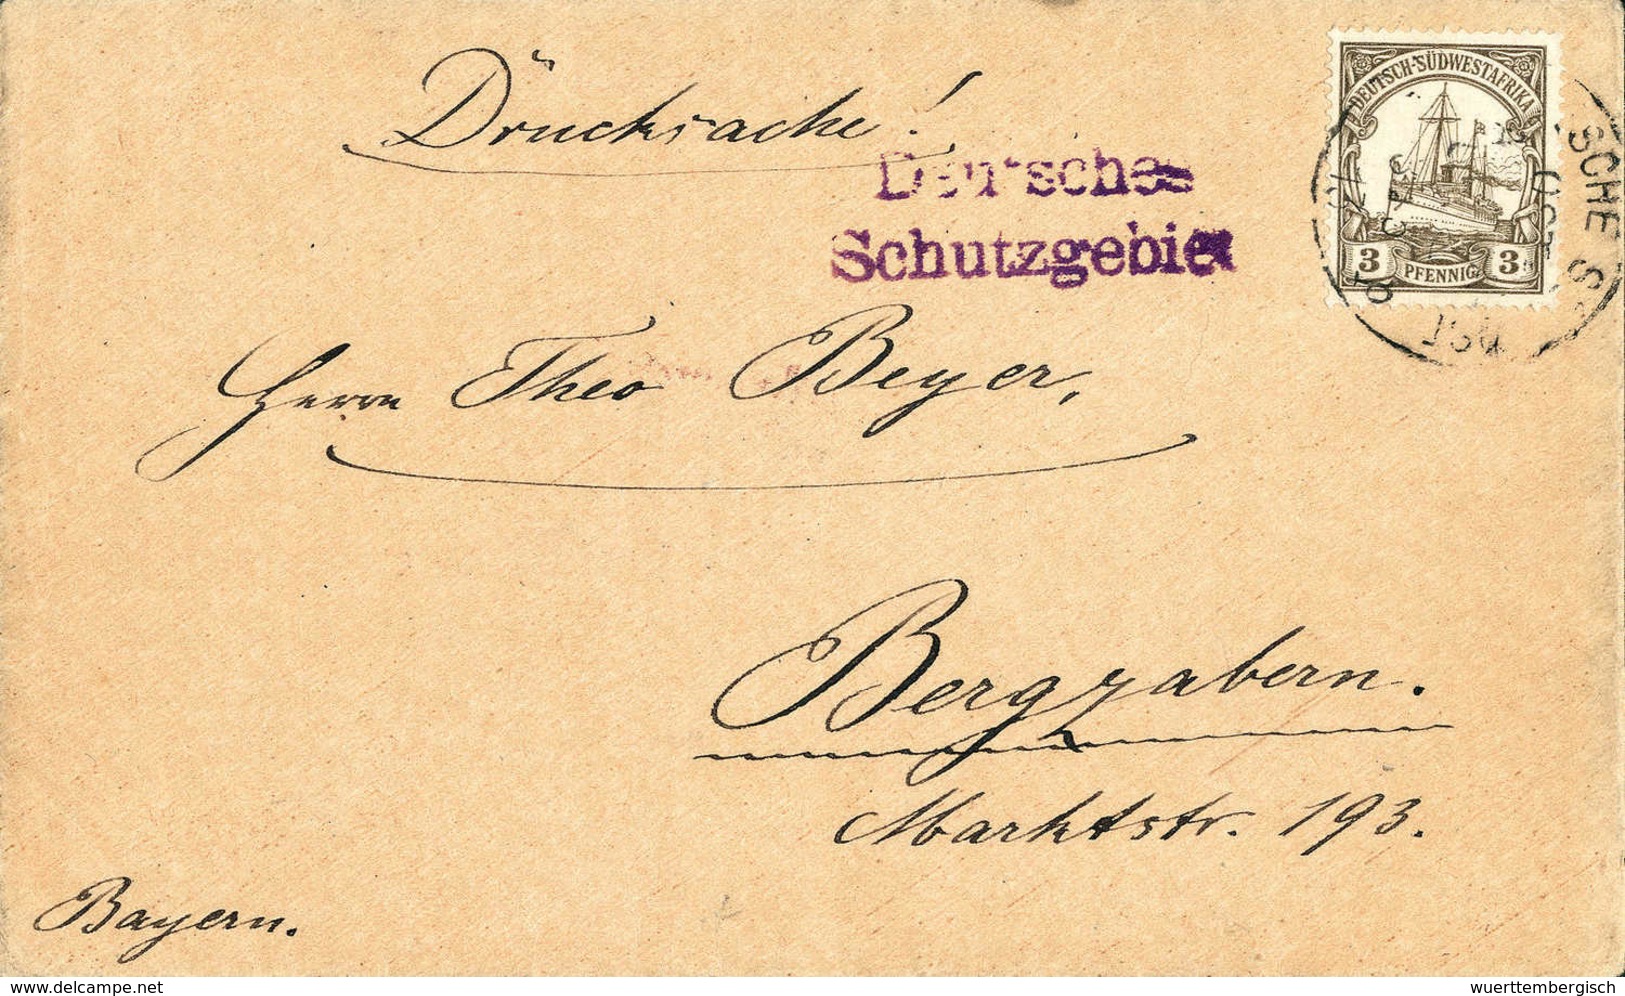 Drucksache!
DEUTSCH-SÜDWESTAFRIKA
3 PFENNIG 3
SCHE S
OST
Deutsches
Schutzgebiet
Herrn Theo Beyer,
Bergzabern.
Marktstr. 193.
Bayern.
delcampe.net
wuerttembergisch